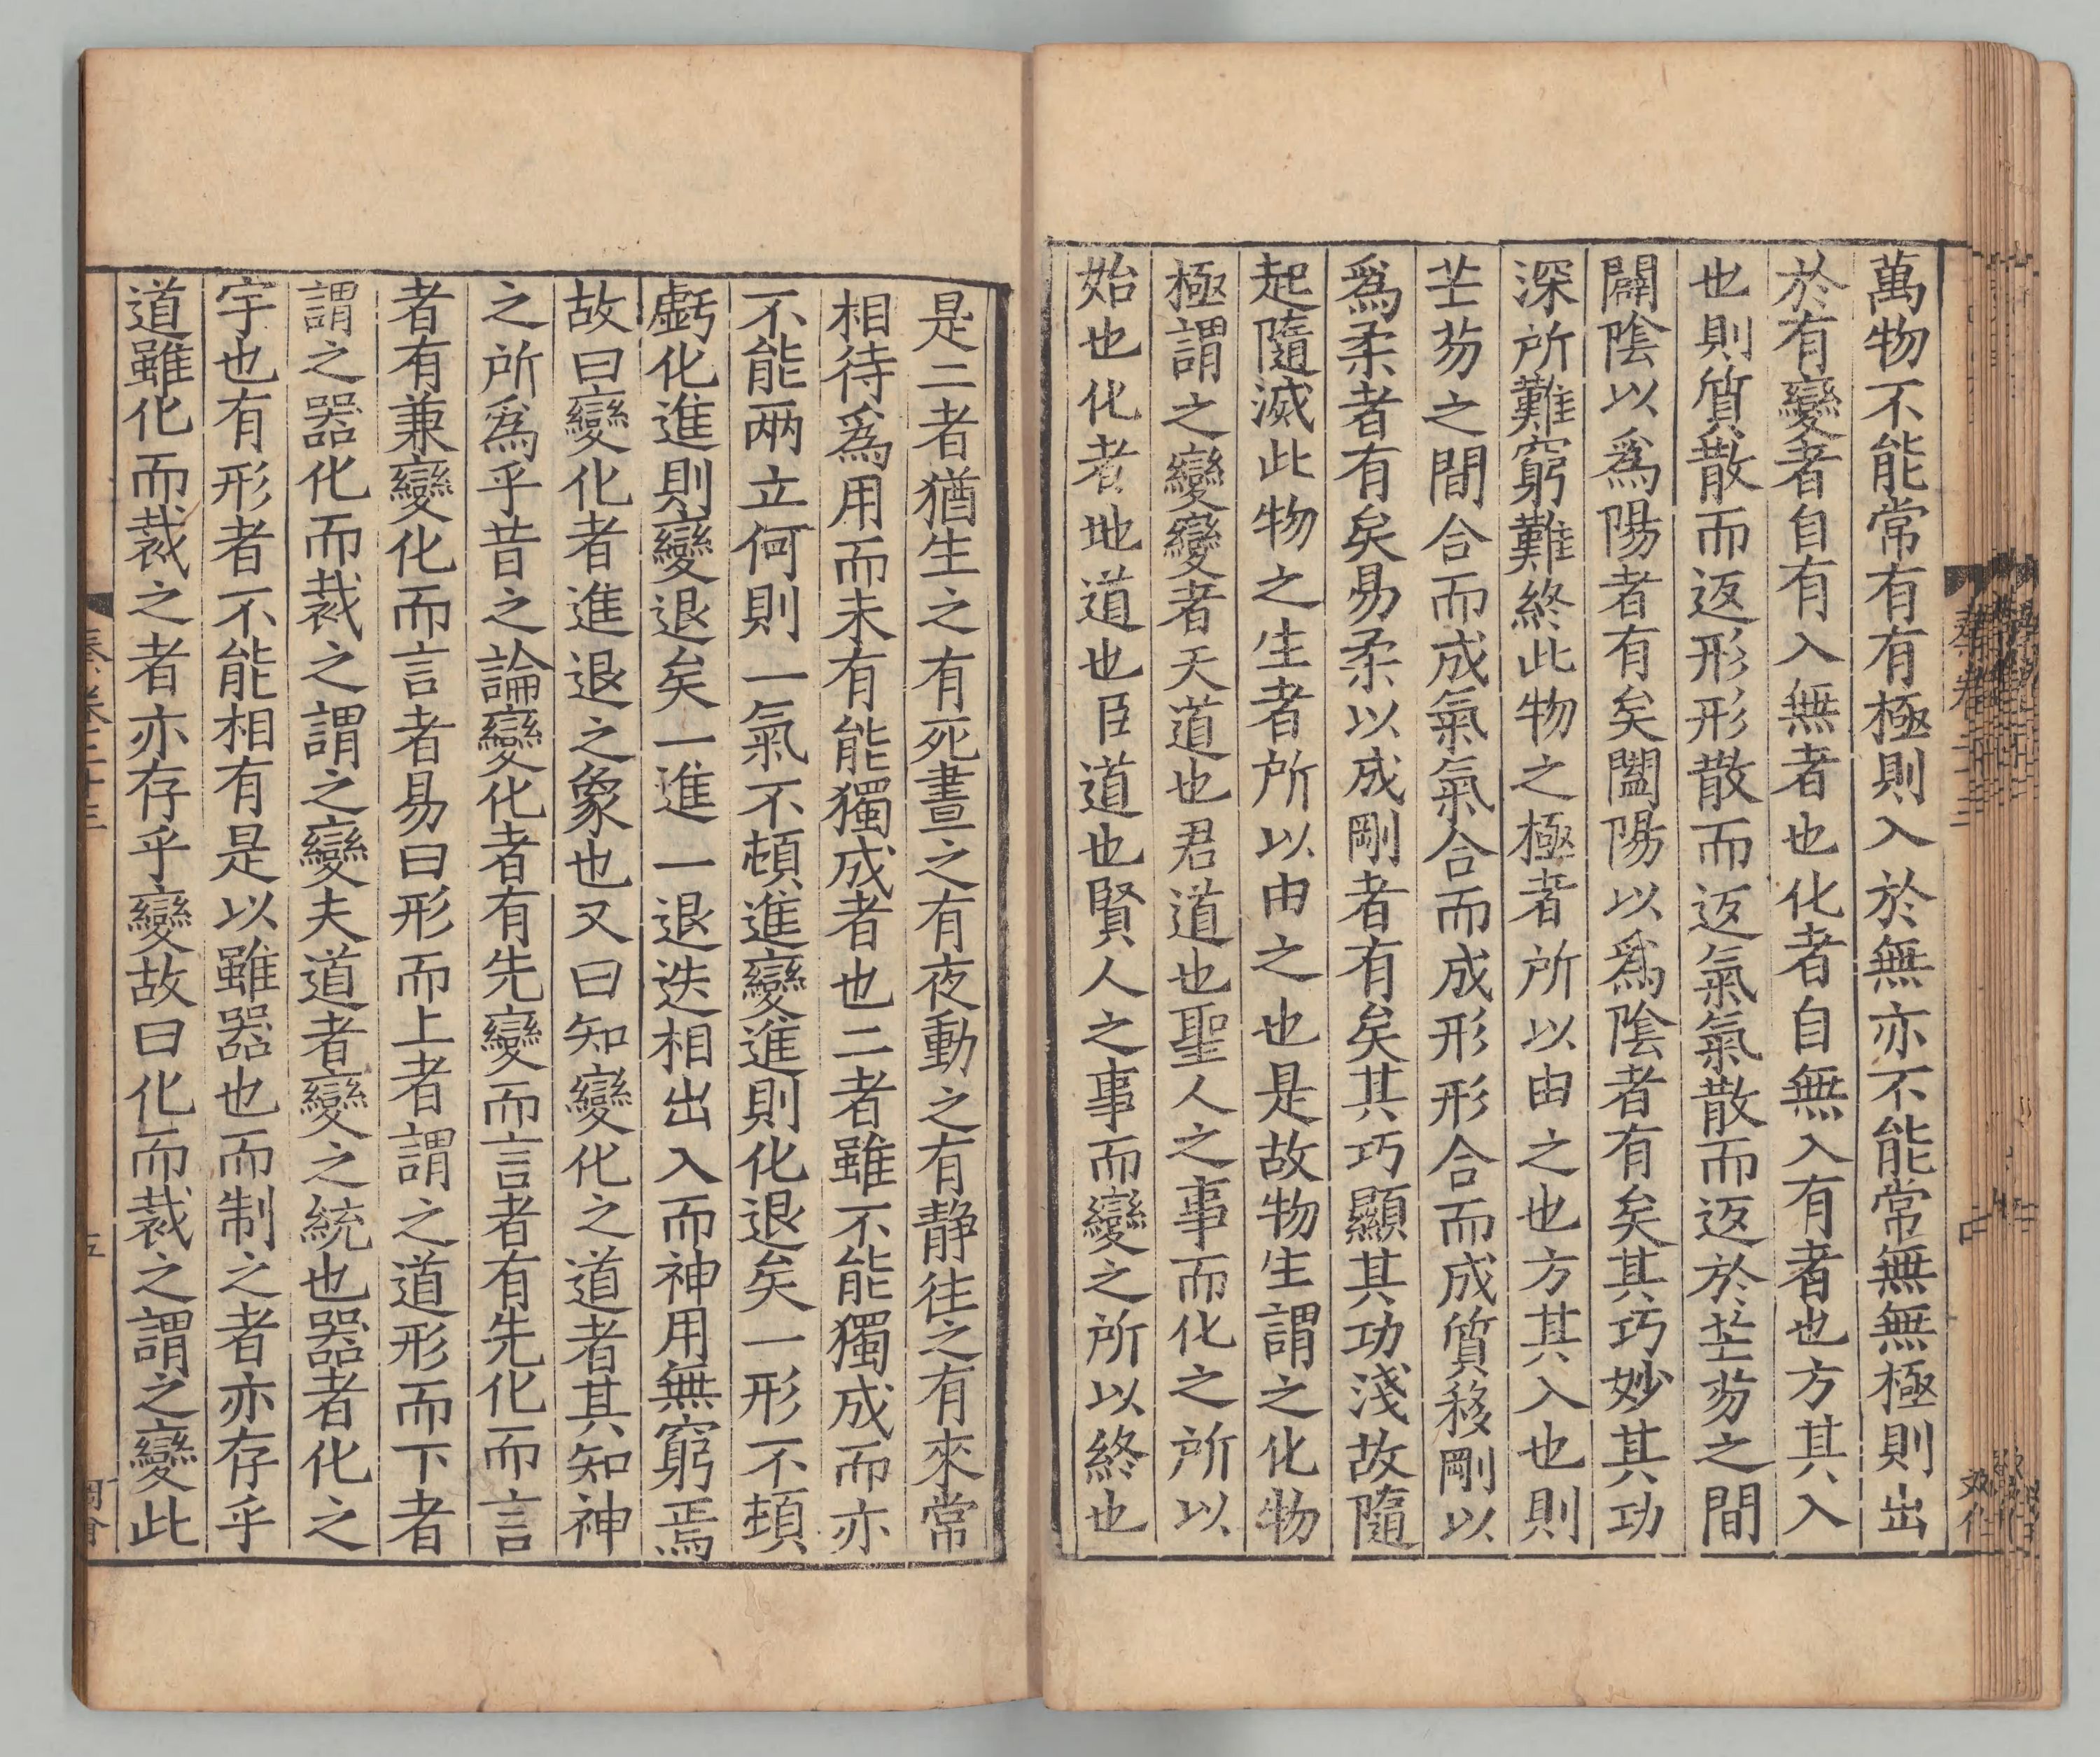 萬物不能常有有極則入於無亦不能常無無極則出
於有變者自有入無者也化者自無入有者也方其入
也則質散而返形形散而返氣氣散而返於芒芴之間
闢陰以爲陽者有矣闔陽以爲陰者有矣其巧妙其功
深所難窮難終此物之極者所以由之也方其入也則
芒芴之間合而成氣氣合而成形形合而成質移剛以
爲柔者有矣易柔以成剛者有矣其巧顯其功淺故隨
起隨滅此物之生者所以由之也是故物生謂之化物
極謂之變變者天道也君道也聖人之事而化之所以
始也化者地道也臣道也賢人之事而變之所以終也
是二者猶生之有死晝之有夜動之有静往之有來常
相待爲用而未有能獨成者也二者雖不能獨成而亦
不能兩立何則一氣不頓進變進則化退矣一形不頓
虧化進則變退矣一進一退迭相出入而神用無窮焉
故曰變化者進退之象也又曰知變化之道者其知神
之所爲乎昔之論變化者有先變而言者有先化而言
者有兼變化而言者易曰形而上者謂之道形而下者
謂之器化而裁之謂之變夫道者變之統也器者化之
宇也有形者不能相有是以雖器也而制之者亦存乎
道雖化而裁之者亦存乎變故曰化而裁之謂之變此